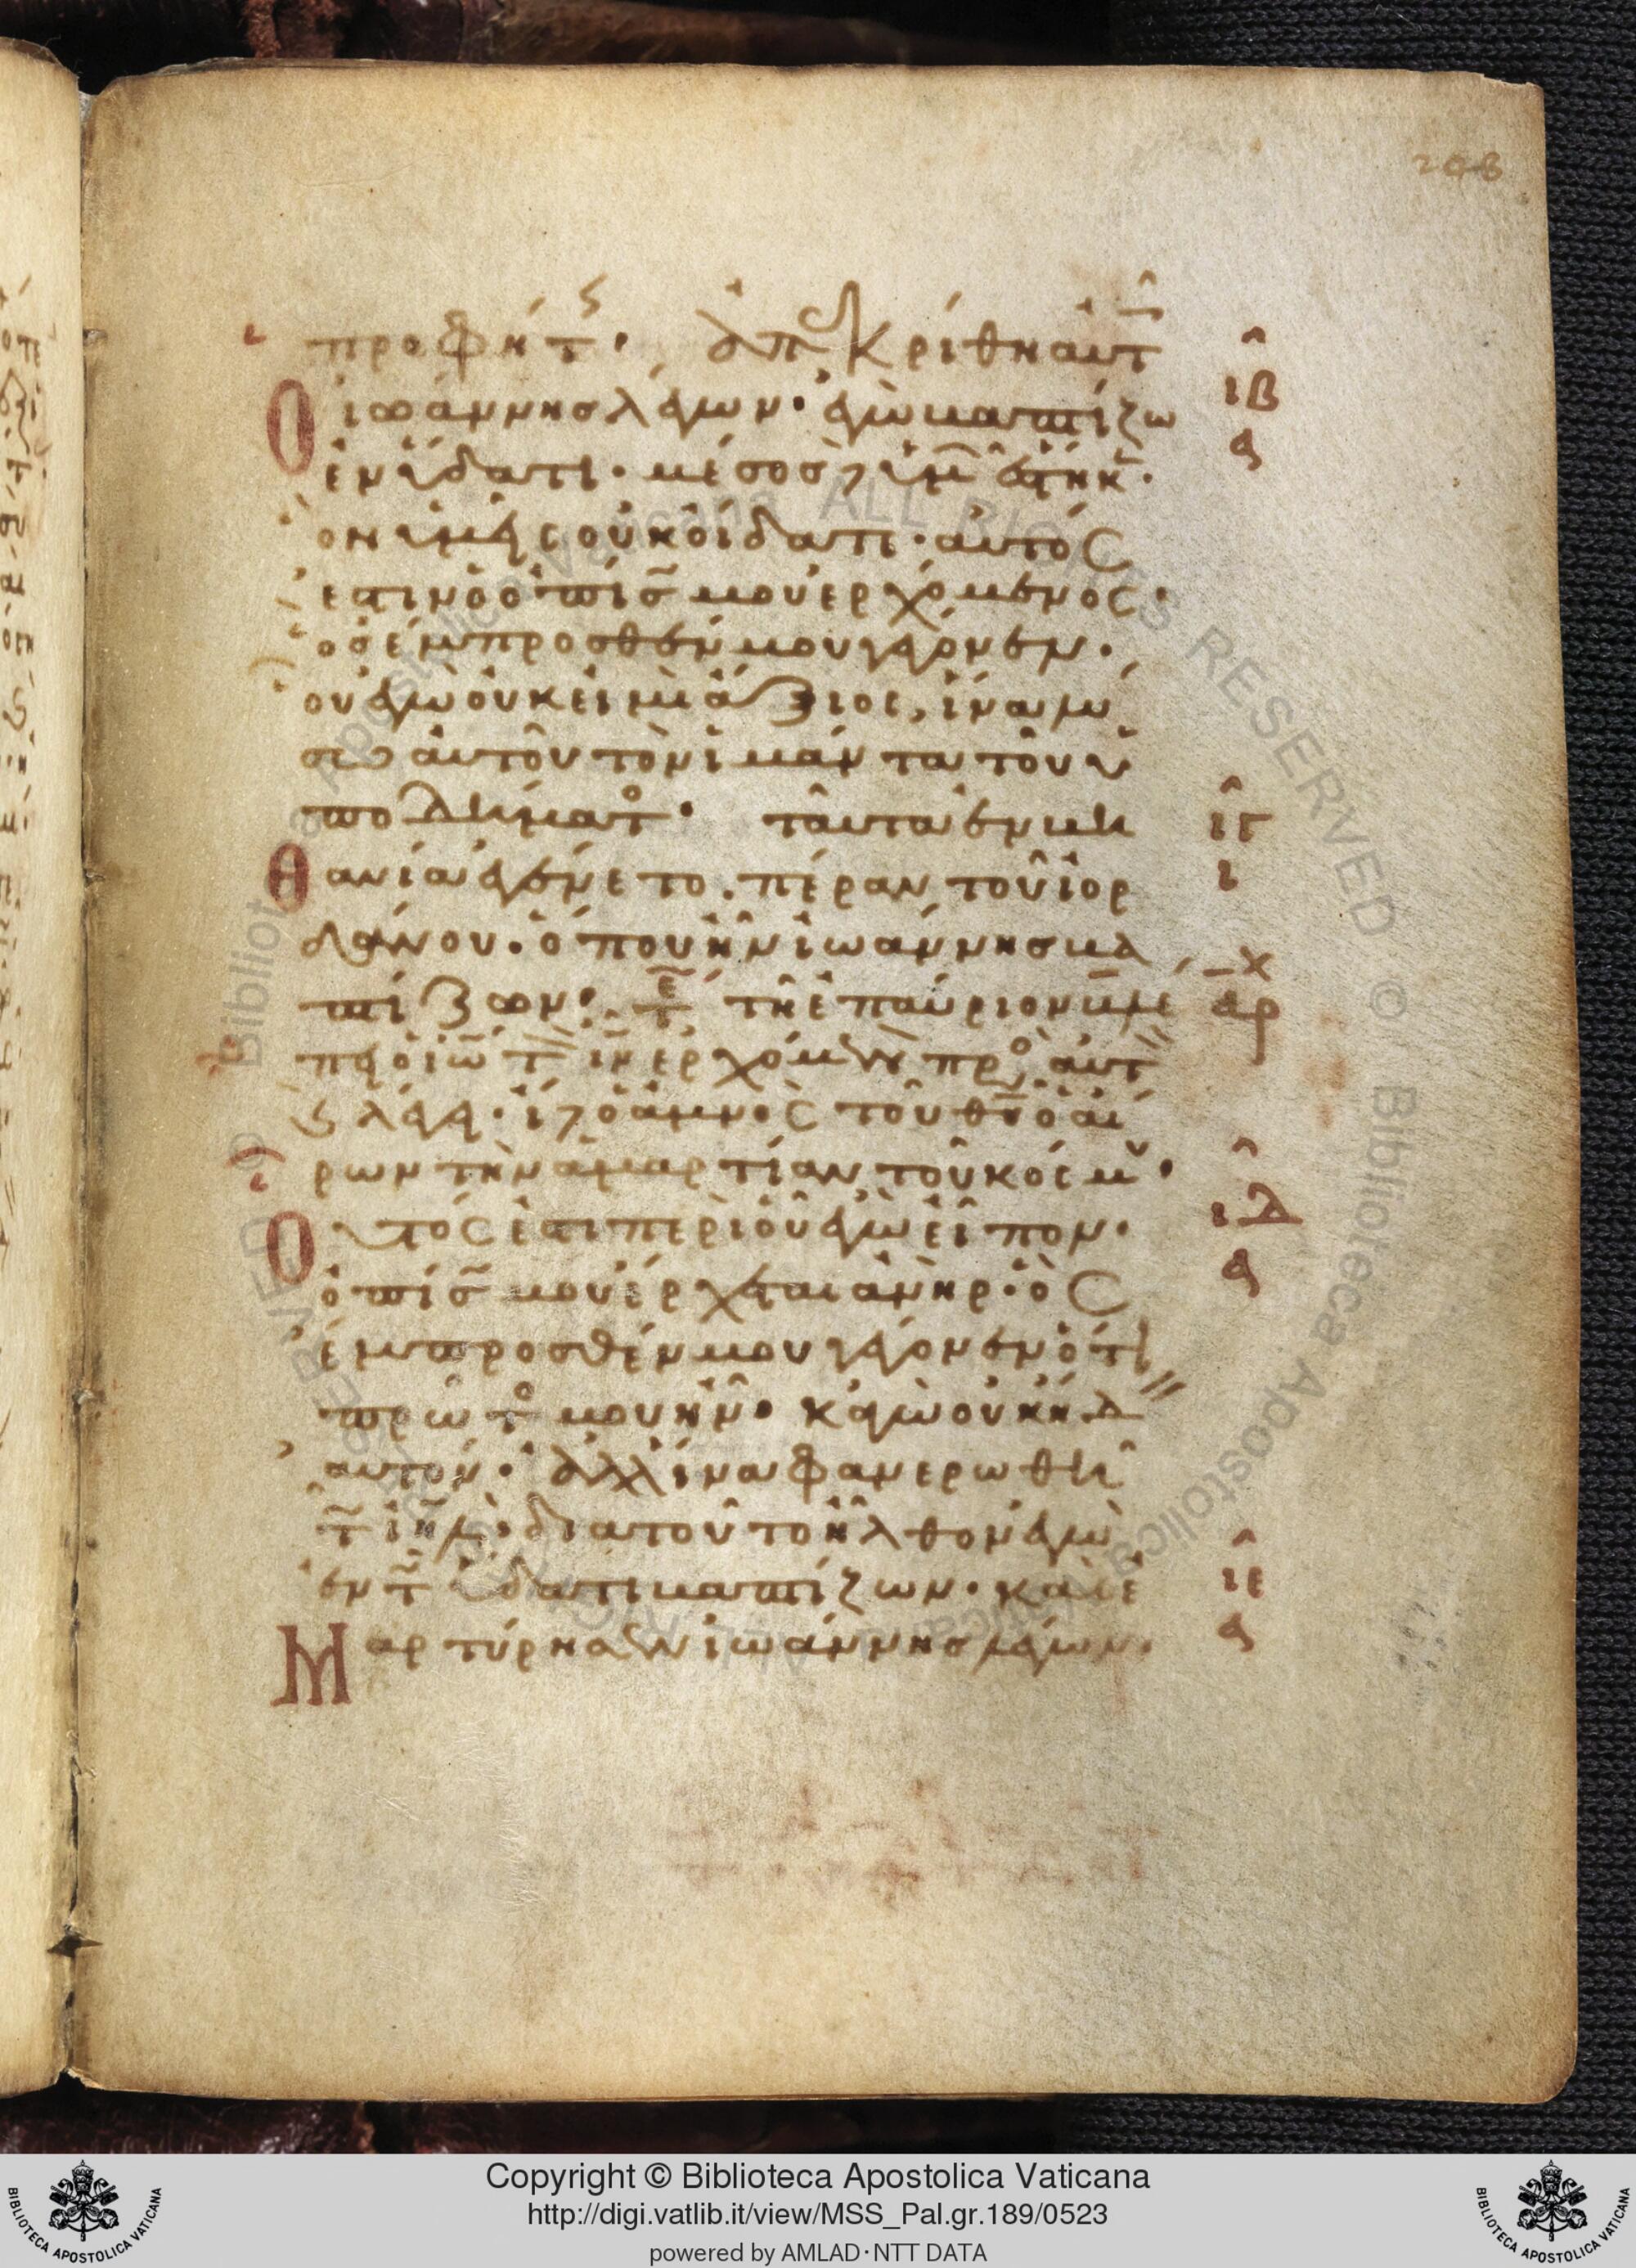 268
προφήτης· ἀπεκρίθη αὐτοῖς
ὁ ἰωάννης λέγων· ἐγὼ βαπτίζω
ιβ
ἐν ὕδατι· μέσος δὲ ὑμῶν ἕστηκεν·
ὃν ὑμεῖς οὐκ οἴδατε· αὐτός
ἐστιν ὁ ὀπίσω μου ἐρχόμενος·
ὃς ἔμπροσθέν μου γέγονεν·
οὗ ἐγὼ οὐκ εἰμὶ ἄξιος, ἵνα λύ
σω αὐτοῦ τὸν ἱμάντα τοῦ ὑ
ποδήματος· ταῦτα ἐν βη
ιγ
θανία ἐγένετο· πέραν τοῦ ἰορ
ι
δάνου· ὅπου ἦν ἰωάννης βα
πτίζων· τῇ ἐπαύριον βλέ
αρχ
πει ὁ ἰω τὸν ιν ἐρχόμενον πρὸς αὐτὸν
καὶ λέγει· ἴδε ὁ ἀμνὸς τοῦ θυ ὁ αἴ
ρων τὴν ἁμαρτίαν τοῦ κόσμου·
Οὗτός ἐστι περὶ οὗ ἐγὼ εἶπον·
ιδ
ὀπίσω μου ἔρχεται ἀνήρ· ὃς
ἔμπροσθέν μου γέγονεν ὅτι
πρῶτός μου ἦν· κἀγὼ οὐκ ᾔδειν
αὐτόν· ἀλλ' ἵνα φανερωθῇ
τῷ ιηλ· διὰ τοῦτο ἦλθον ἐγὼ
ἐν τῷ ὕδατι βαπτίζων· καὶ ἐ
ιε
Μαρτύρησεν ἰωάννης λέγων·
Copyright © Biblioteca Apostolica Vaticana
http://digi.vatlib.it/view/MSS_Pal.gr.189/0523
powered by AMLAD·NTT DATA
BIBLIOTECA APOSTOLICA VATICANA
BIBLIOTECA APOSTOLICA VATICANA